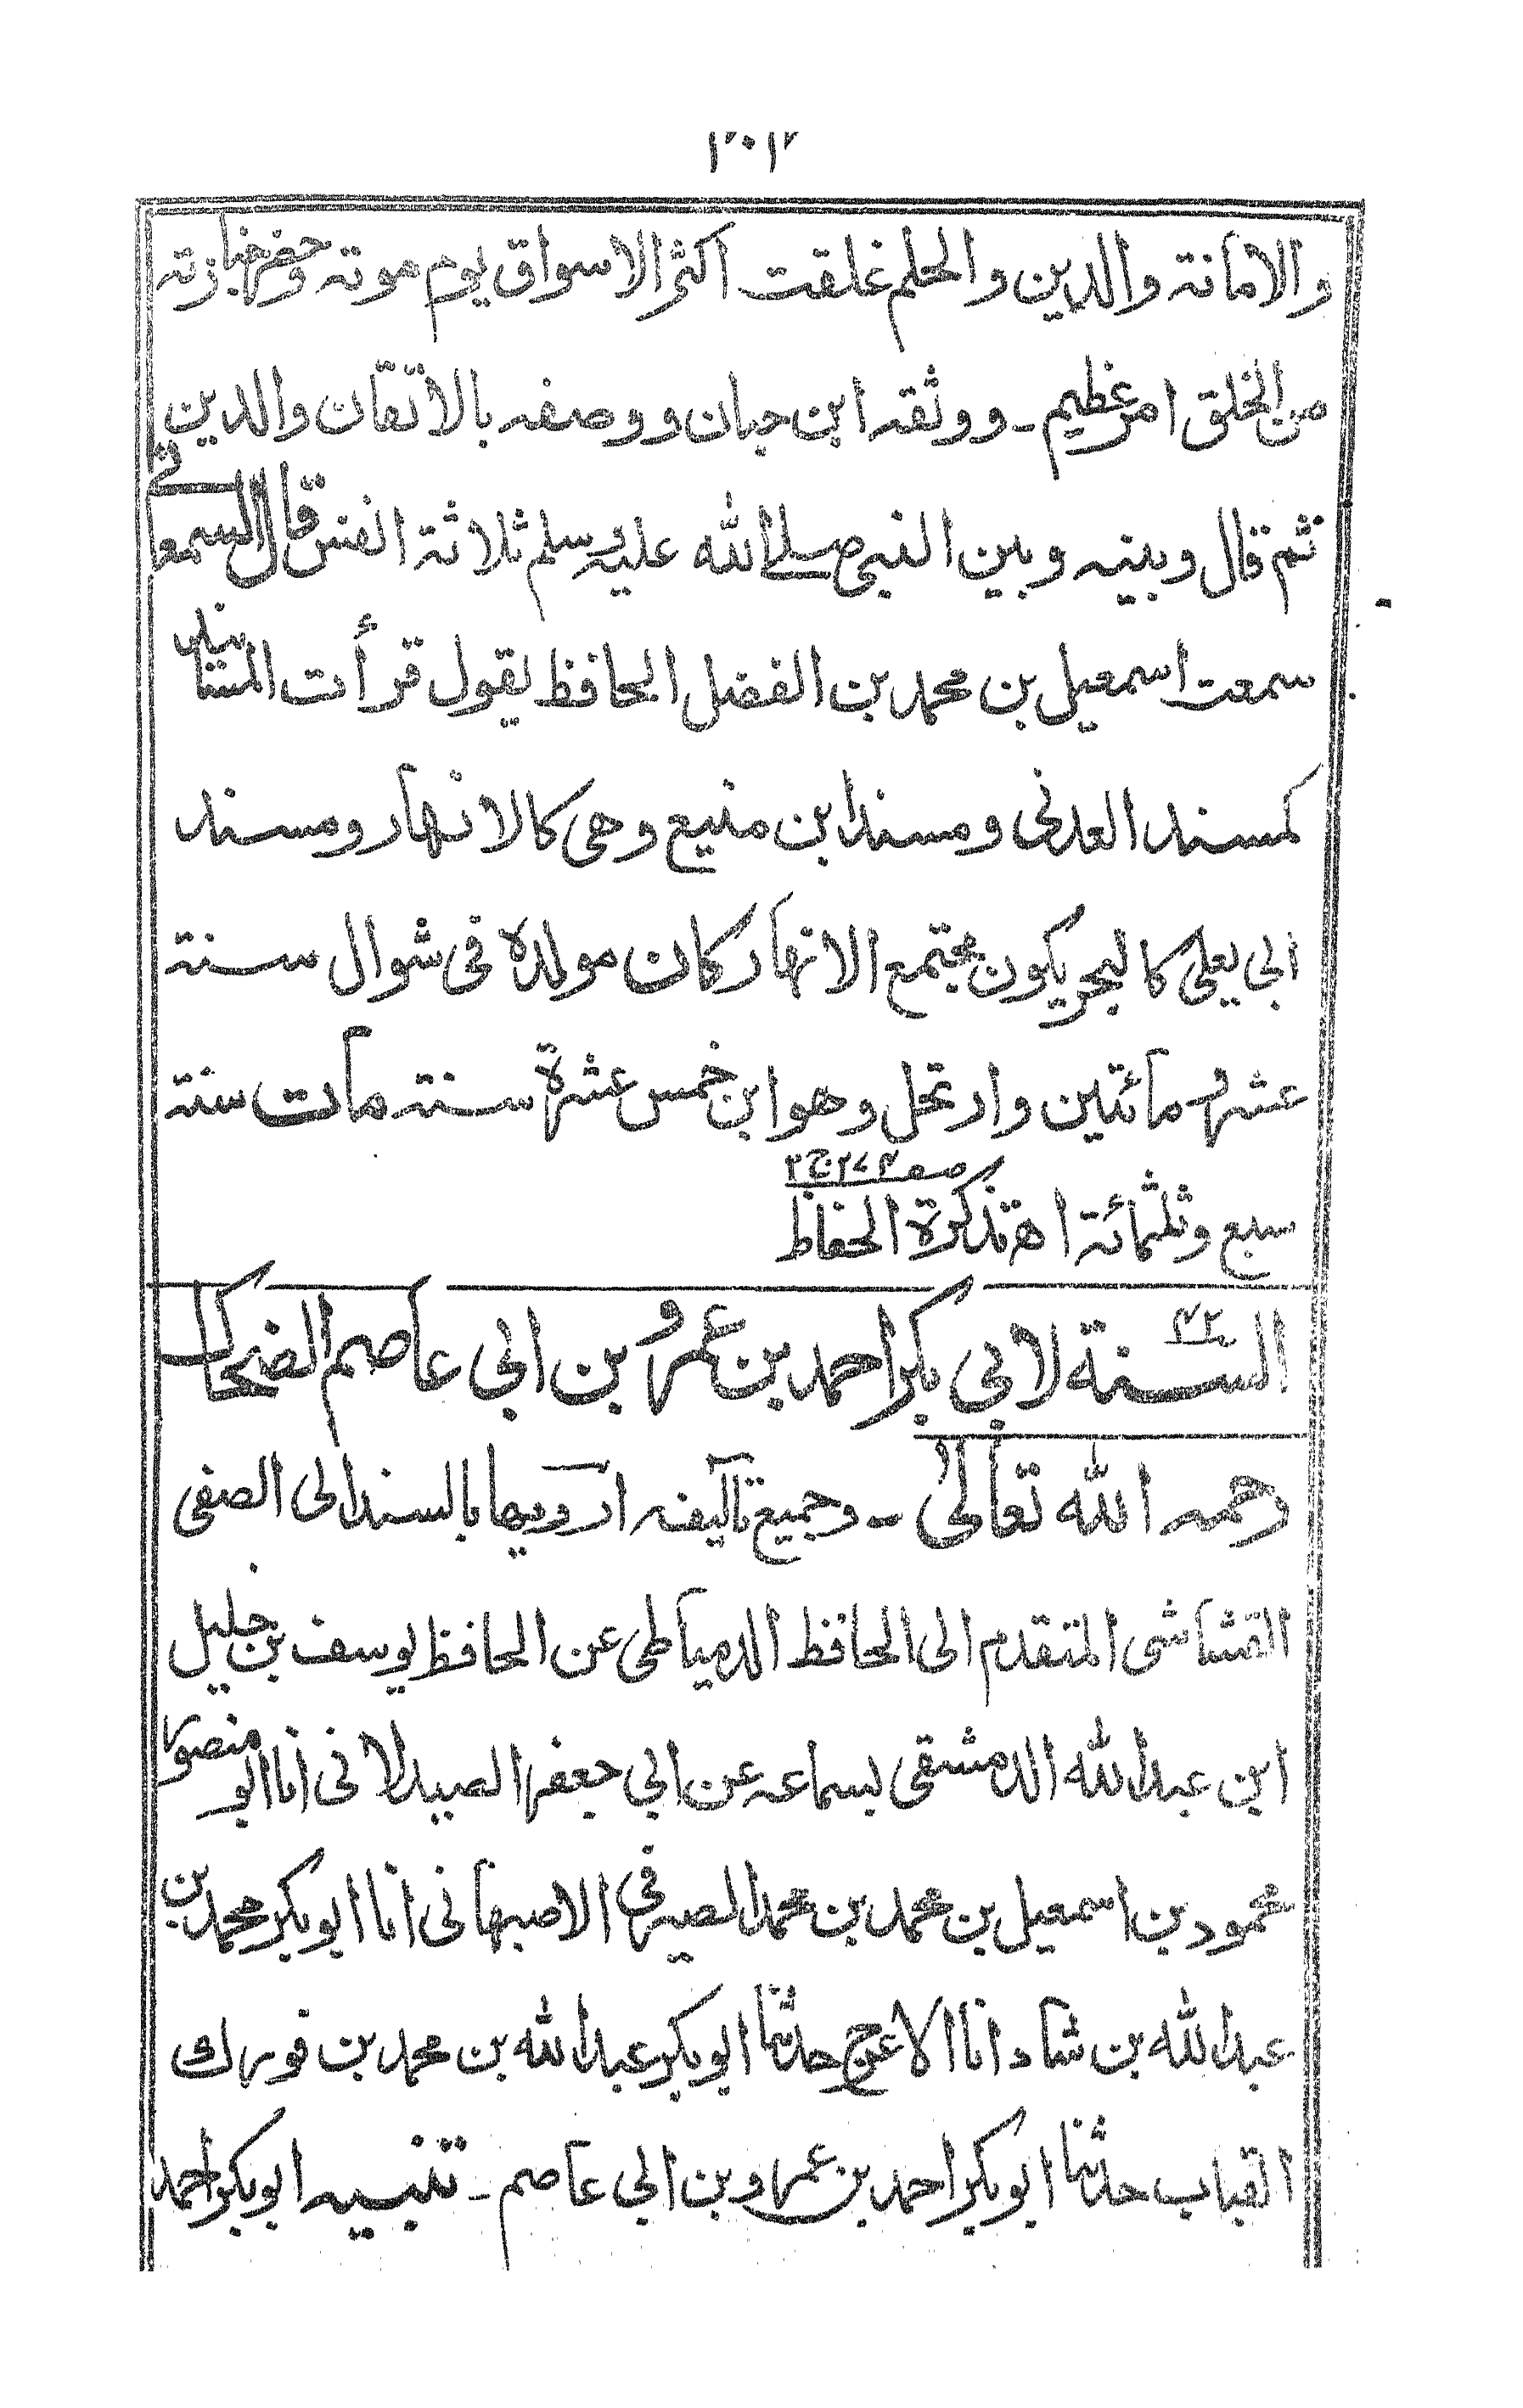 والامانة والدين والحلم غلقت اكثر الاسواق يوم موته وحضر جنازته
من الخلق امر عظيم ـ ووثقه ابن حبان ووصفه بالاتقان والدين
ثم قال وبينه وبين النبي صلى الله عليه وسلم ثلاثة انفس قال السمعاني
سمعت اسمعيل بن محمد بن الفضل الحافظ يقول قرأت المسانيد
كمسند العدني ومسند ابن منيع وهي كالانهار ومسند
ابي يعلى كالبحر يكون مجتمع الانهار كان مولده في شوال سنة
عشر ومائتين وارتحل وهو ابن خمس عشرة سنة مات سنة
سبع وثلثمائة اه تذكرة الحفاظ
السنة لابي بكر احمد بن عمرو بن ابي عاصم الضحاك
رحمه الله تعالى ـ وجميع تآليفه ارويها بالسند الى الصفي
القشاشي المتقدم الى الحافظ الدمياطي عن الحافظ يوسف بن خليل
ابن عبد الله الدمشقي بسماعه عن ابي جعفر الصيدلاني انا ابو منصور
محمود بن اسمعيل بن محمد بن محمد الصيرفي الاصبهاني انا ابو بكر محمد بن
عبد الله بن شاد انا الاعرج حدثنا ابو بكر عبد الله بن محمد بن فورك
القباب حدثنا ابو بكر احمد بن عمرو بن ابي عاصم ـ تنبيه ابو بكر احمد